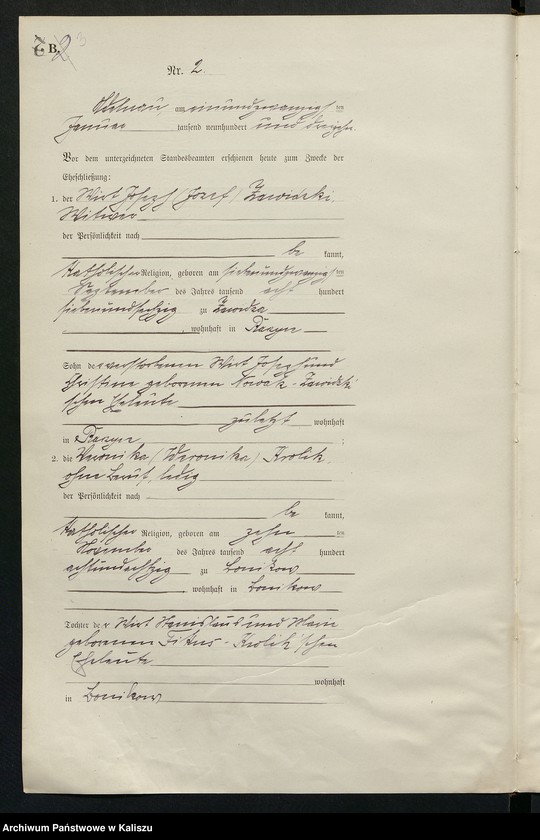 B.
Nr. 2.
Adelnau, am einundzwanzigsten
Januar tausend neunhundert und dreizehn
Vor dem unterzeichneten Standesbeamten erschienen heute zum Zwecke der
Eheschließung:
1. der Wirt Joseph (Josef)
Witwer
der Persönlichkeit nach
be kannt,
katholischer Religion, geboren am siebenundzwanzigsten
September des Jahres tausend acht hundert
siebenundsechzig zu
, wohnhaft in
Sohn der verstorbenen Wirt Joseph und
Christine geborenen Nowak -
schen Eheleute
zuletzt wohnhaft
in ;
2. die Veronika (Weronika) Krolik,
ohne Beruf, ledig
der Persönlichkeit nach
be kannt,
katholischer Religion, geboren am zehnten
November des Jahres tausend acht hundert
achtundachtzig zu Bonikow
, wohnhaft in Bonikow
Tochter der Wirt Stanislaus und Marie
geborenen - Krolik'schen
Eheleute
wohnhaft
in Bonikow
Archiwum Państwowe w Kaliszu